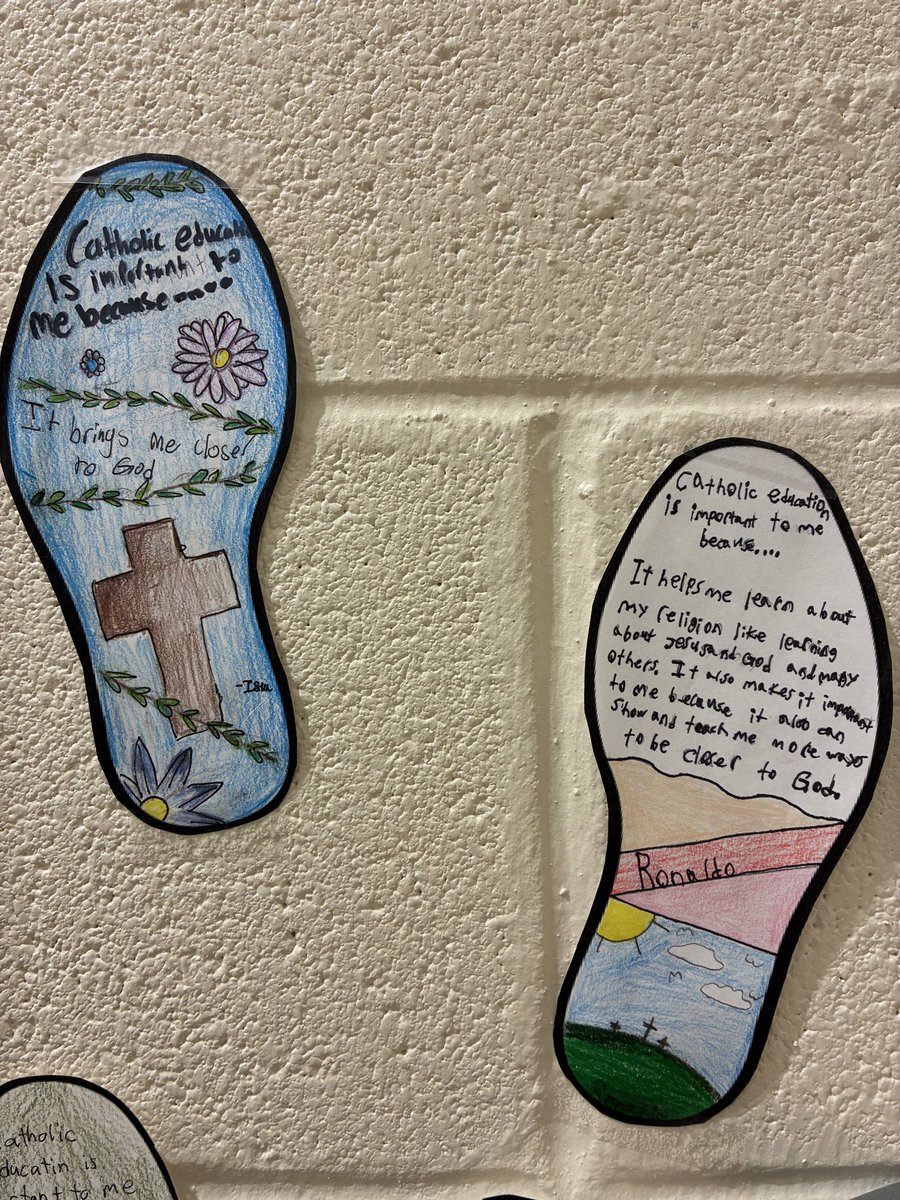 Catholic educati
Is important to
me because.....
It brings me closer
to God
-Isa
Catholic education
is important to me
because....
It helps me learn about
my religion like learning
about Jesus and God and many
others. It also makes it important
to me because it also can
show and teach me more ways
to be closer to God.
Ronaldo
atholic
ducatin is
rtant to me